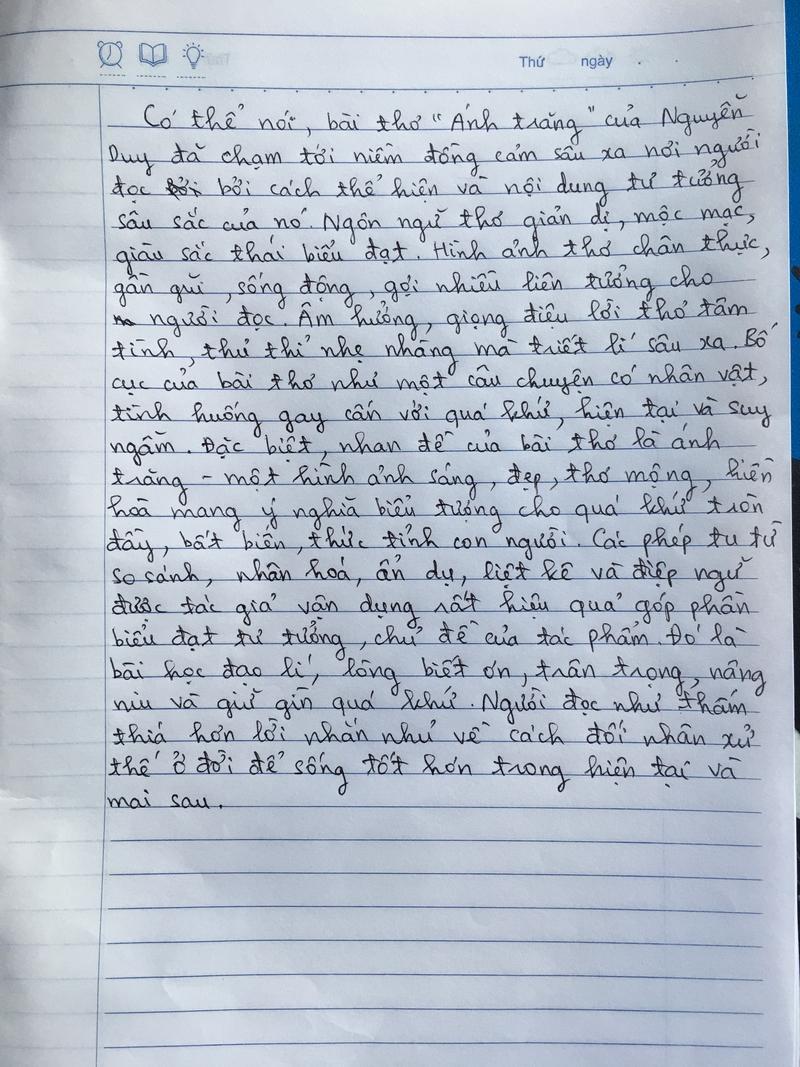 Thứ ngày
Có thể nói, bài thơ "Ánh trăng" của Nguyễn
Duy đã chạm tới niềm đồng cảm sâu xa nơi người
đọc bởi cách thể hiện và nội dung tư tưởng
sâu sắc của nó. Ngôn ngữ thơ giản dị, mộc mạc,
giàu sắc thái biểu đạt. Hình ảnh thơ chân thực,
gần gũi, sống động, gợi nhiều liên tưởng cho
người đọc. Âm hưởng, giọng điệu lời thơ tâm
tình, thủ thỉ nhẹ nhàng mà triết lí sâu xa. Bố
cục của bài thơ như một câu chuyện có nhân vật,
tình huống gay cấn với quá khứ, hiện tại và suy
ngẫm. Đặc biệt, nhan đề của bài thơ là ánh
trăng - một hình ảnh sáng, đẹp, thơ mộng, hiền
hoà mang ý nghĩa biểu tượng cho quá khứ tròn
đầy, bất biến, thức tỉnh con người. Các phép tu từ
so sánh, nhân hoá, ẩn dụ, liệt kê và điệp ngữ
được tác giả vận dụng rất hiệu quả góp phần
biểu đạt tư tưởng, chủ đề của tác phẩm. Đó là
bài học đạo lí, lòng biết ơn, trân trọng, nâng
niu và giữ gìn quá khứ. Người đọc như thấm
thía hơn lời nhắn nhủ về cách đối nhân xử
thế ở đời để sống tốt hơn trong hiện tại và
mai sau.